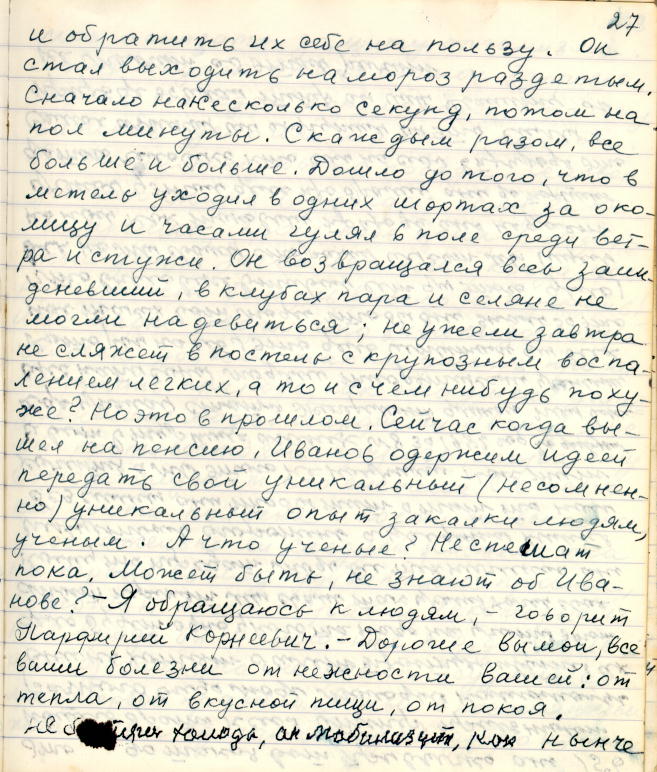 27
и обратить их себе на пользу. Он
стал выходить на мороз раздетым.
Сначало на несколько секунд, потом на
пол минуты. С каждым разом, все
больше и больше. Дошло до того, что в
метель уходил в одних шортах за око-
лицу и часами гулял в поле среди вет-
ра и стужи. Он возвращался весь заин-
деневший, в клубах пара и селяне не
могли надевиться; не ужели завтра
не сляжет в постель с крупозным воспа-
лением легких, а то и с чем нибудь поху-
же? Но это в прошлом. Сейчас когда вы-
шел на пенсию, Иванов одержим идеей
передать свой уникальный (несомнен-
но) уникальный опыт закалки людям,
ученым. А что ученые? Не спешат
пока. Может быть, не знают об Ива-
нове? - Я обращаюсь к людям, - говорит
Парфирий Корнеевич. - Дорогие вы мои, все
ваши болезни от нежности вашей: от
тепла, от вкусной пищи, от покоя.
не холода, он мобилизует, как нынче